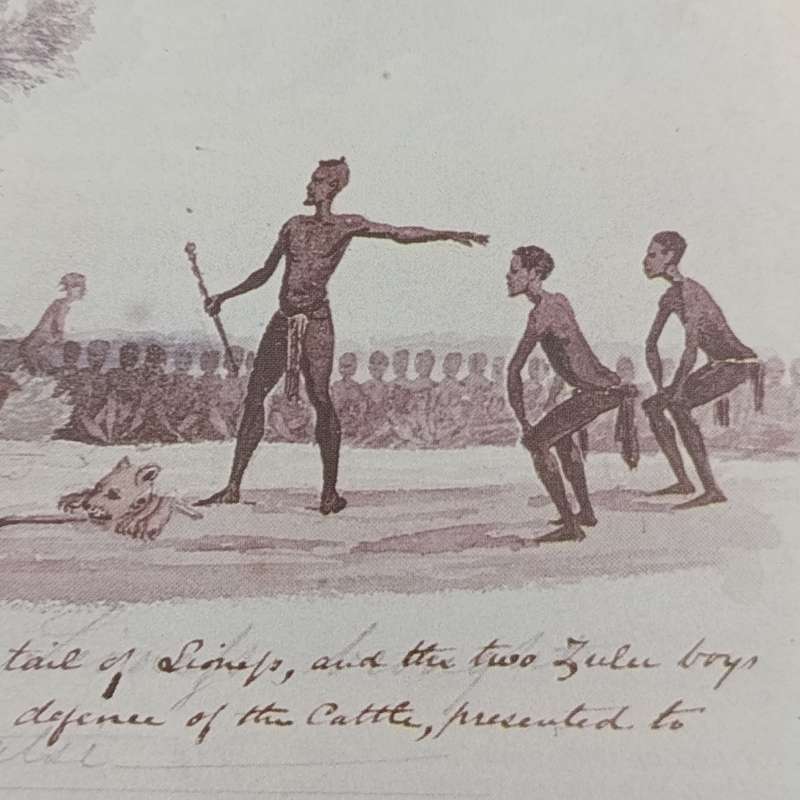 tail of Lioness, and the two Zulu boys
defence of the Cattle, presented to